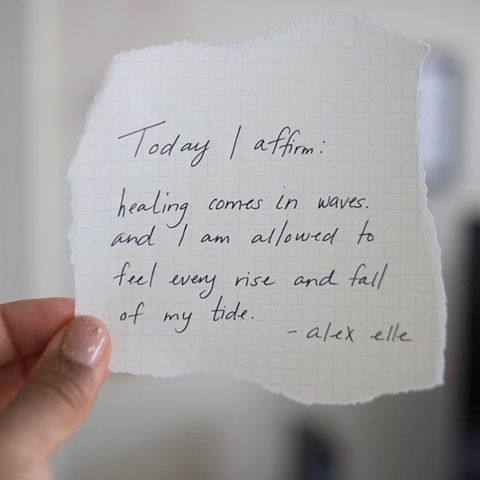 Today I affirm:
healing comes in waves.
and I am allowed to
feel every rise and fall
of my tide.
- alex elle